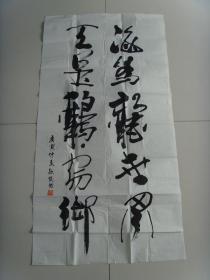 海為龍世界
天是鶴家鄉
庚寅仲夏